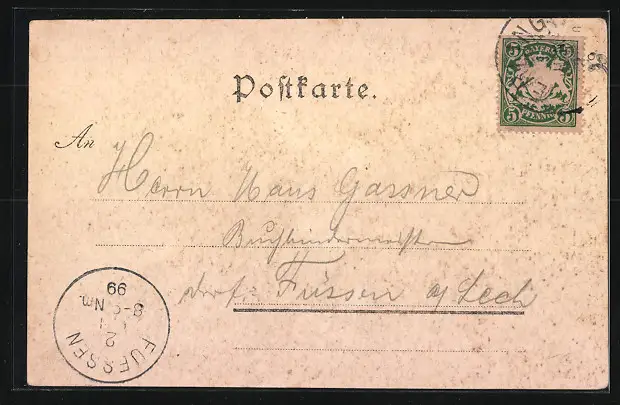 5 BAYERN 5
5 PFENNIG 5
Postkarte.
An
Herrn Hans Gassner
Buchbindermeister
Füssen a/Lech
FUESSEN
2
8-9 Nm.
99